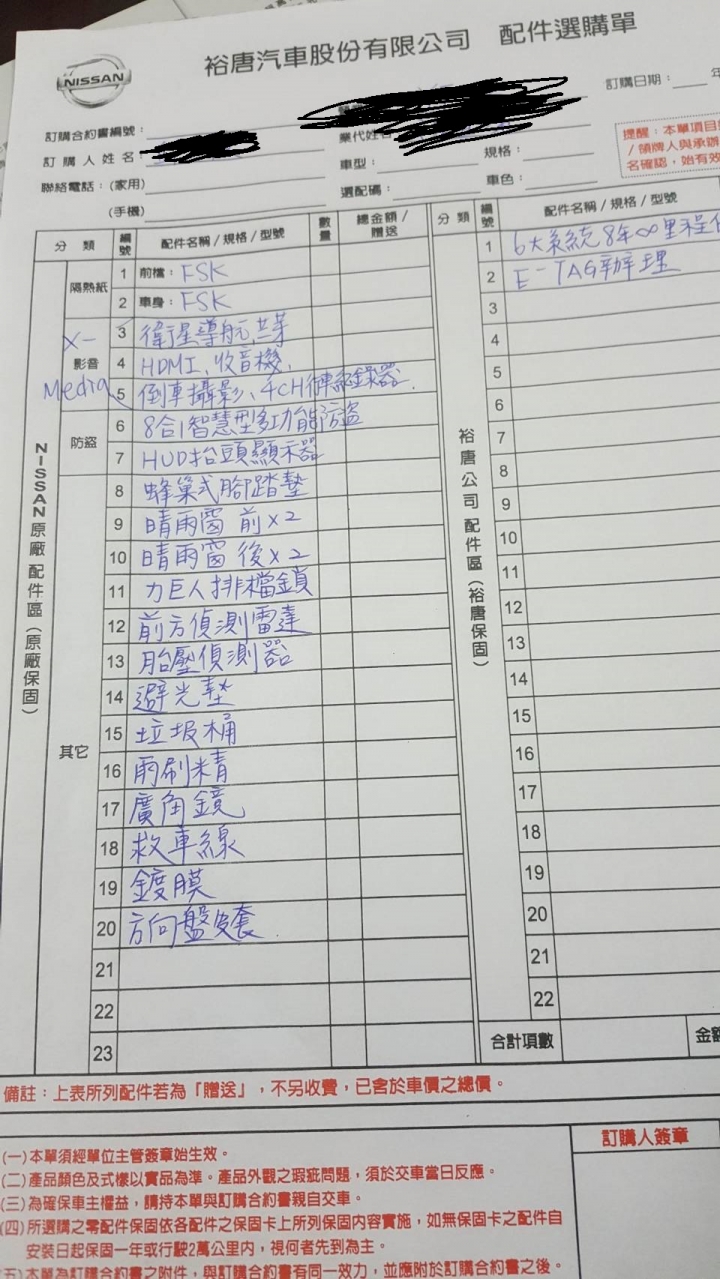 NISSAN
裕唐汽車股份有限公司 配件選購單
訂購日期：
訂購合約書編號：
訂購人姓名：
業代姓
聯絡電話：(家用)
車型：
規格：
(手機)
選配碼：
車色：
提醒：本單項目
/ 領牌人與承辦
名確認，始有效
分 類
編號
配件名稱 / 規格 / 型號
數量
總金額 / 贈送
NISSAN 原廠配件區（原廠保固）
隔熱紙
1 前檔：FSK
2 車身：FSK
X-Media
影音
3 衛星導航、
4 HDMI、收音機、
5 倒車攝影、4CH行車紀錄器
防盜
6 8合1智慧型多功能防盜
7 HUD抬頭顯示器
其它
8 蜂巢式腳踏墊
9 晴雨窗 前x2
10 晴雨窗 後x2
11 力巨人排檔鎖
12 前方偵測雷達
13 胎壓偵測器
14 避光墊
15 垃圾桶
16 雨刷精
17 廣角鏡
18 救車線
19 鍍膜
20 方向盤皮套
21
22
23
分 類
編號
配件名稱 / 規格 / 型號
裕唐公司配件區（裕唐保固）
1 6大系統8年∞里程
2 E-TAG辦理
3
4
5
6
7
8
9
10
11
12
13
14
15
16
17
18
19
20
21
22
合計項數
備註：上表所列配件若為「贈送」，不另收費，已含於車價之總價。
(一)本單須經單位主管簽章始生效。
(二)產品顏色及式樣以實品為準。產品外觀之瑕疵問題，須於交車當日反應。
(三)為確保車主權益，請持本單與訂購合約書親自交車。
(四)所選購之零配件保固依各配件之保固卡上所列保固內容實施，如無保固卡之配件自
安裝日起保固一年或行駛2萬公里內，視何者先到為主。
(五)本單為訂購合約書之附件，與訂購合約書有同一效力，並應附於訂購合約書之後。
訂購人簽章